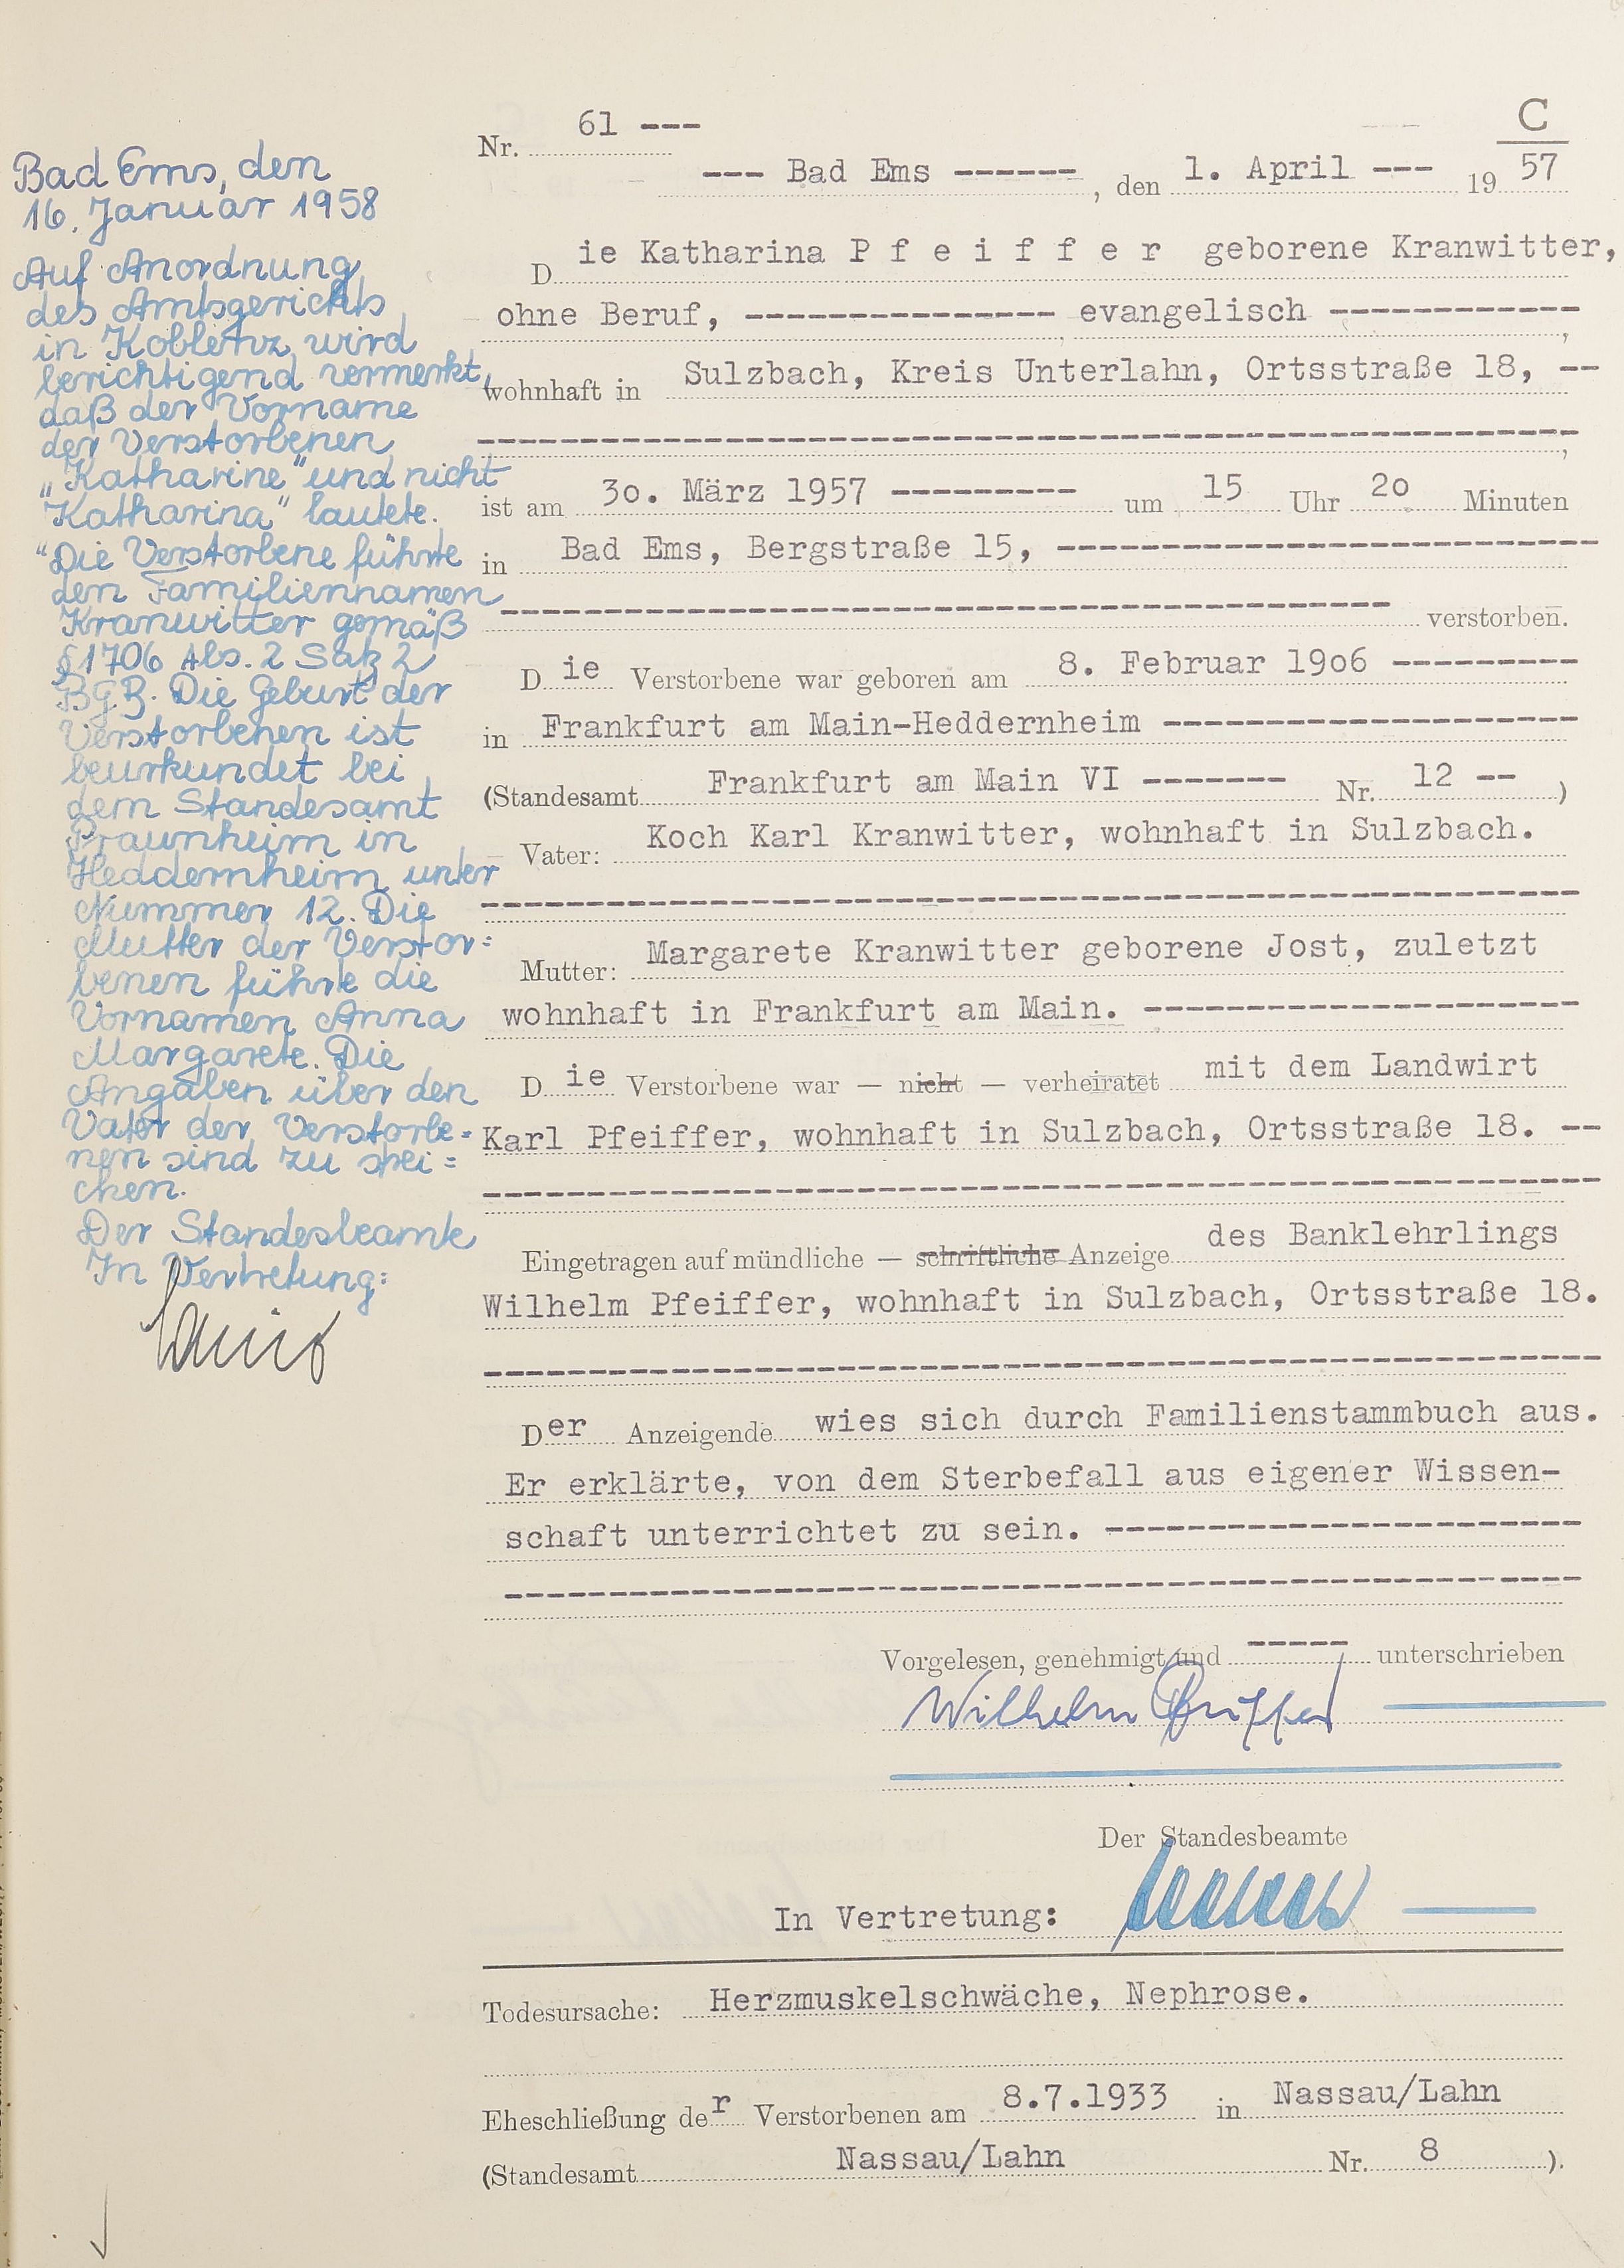 C
Nr. 61 ---
--- Bad Ems ------, den 1. April --- 19 57
Die Katharina P f e i f f e r geborene Kranwitter,
ohne Beruf, --------------- evangelisch ------------,
wohnhaft in Sulzbach, Kreis Unterlahn, Ortsstraße 18, --
ist am 3o. März 1957 --------- um 15 Uhr 2o Minuten
in Bad Ems, Bergstraße 15, --------------------------
verstorben.
Die Verstorbene war geboren am 8. Februar 19o6 ---------
in Frankfurt am Main-Heddernheim --------------------
(Standesamt Frankfurt am Main VI ------- Nr. 12 -- )
Vater: Koch Karl Kranwitter, wohnhaft in Sulzbach.
Mutter: Margarete Kranwitter geborene Jost, zuletzt
wohnhaft in Frankfurt am Main. ---------------------
Die Verstorbene war — nicht — verheiratet mit dem Landwirt
Karl Pfeiffer, wohnhaft in Sulzbach, Ortsstraße 18. --
Eingetragen auf mündliche — schriftliche Anzeige des Banklehrlings
Wilhelm Pfeiffer, wohnhaft in Sulzbach, Ortsstraße 18.
Der Anzeigende wies sich durch Familienstammbuch aus.
Er erklärte, von dem Sterbefall aus eigener Wissen-
schaft unterrichtet zu sein. -----------------------
Vorgelesen, genehmigt und ----- unterschrieben
Wilhelm Pfeiffer
Der Standesbeamte
In Vertretung:
Todesursache: Herzmuskelschwäche, Nephrose.
Eheschließung der Verstorbenen am 8.7.1933 in Nassau/Lahn
(Standesamt Nassau/Lahn Nr. 8 ).
Bad Ems, den
16. Januar 1958
Auf Anordnung
des Amtsgerichts
in Koblenz wird
berichtigend vermerkt,
daß der Vorname
der Verstorbenen
„Katharine" und nicht
"Katharina" lautete.
"Die Verstorbene führte
den Familiennamen
Kranwitter gemäß
§ 1706 Abs. 2 Satz 2
BGB. Die Geburt der
Verstorbenen ist
beurkundet bei
dem Standesamt
Praunheim in
Heddernheim unter
Nummer 12. Die
Mutter der Verstor=
benen führte die
Vornamen Anna
Margarete. Die
Angaben über den
Vater der Verstorbe=
nen sind zu strei=
chen.
Der Standesbeamte
In Vertretung: